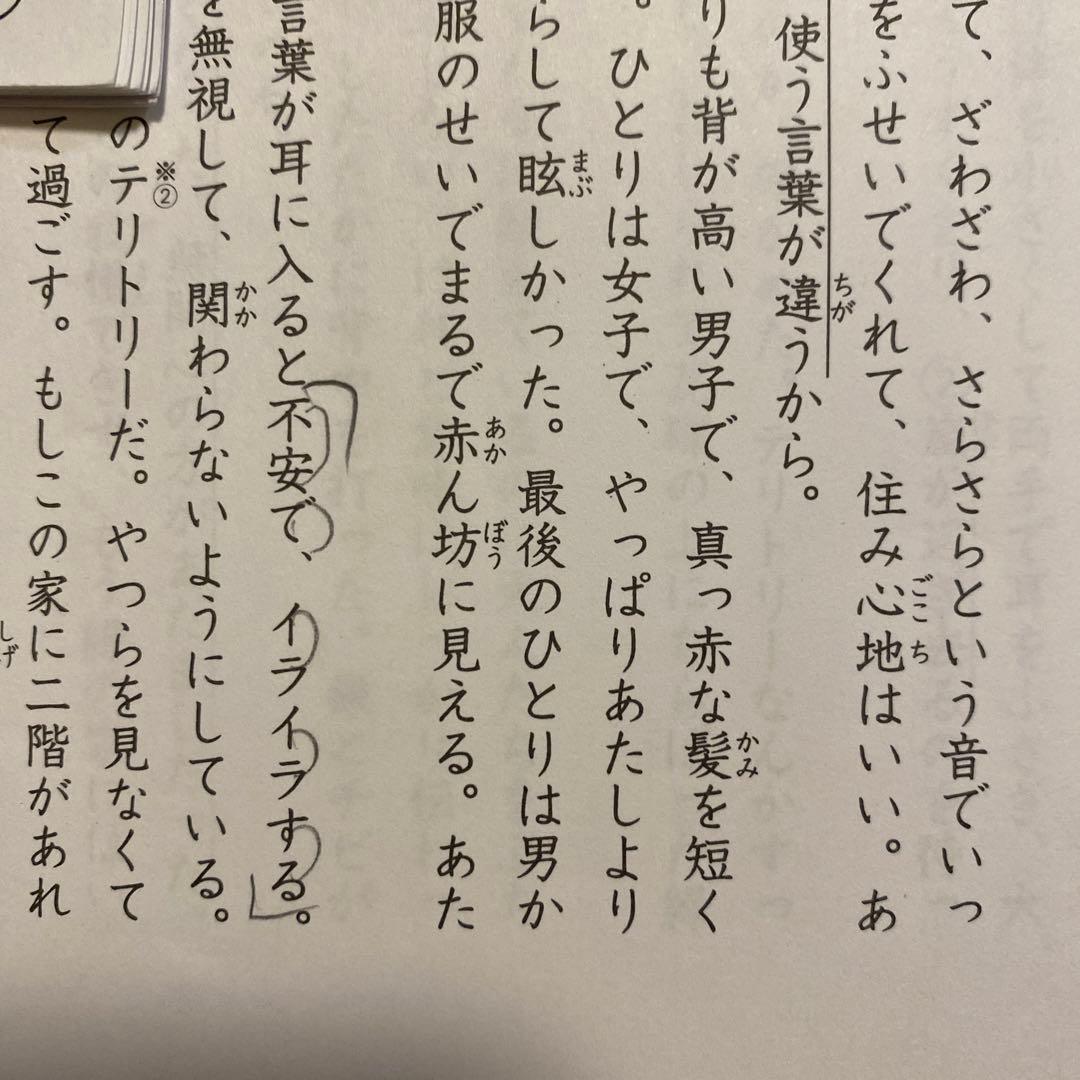 て、ざわざわ、さらさらという音でいっ
をふせいでくれて、住み心地はいい。あ
使う言葉が違うから。
りも背が高い男子で、真っ赤な髪を短く
。ひとりは女子で、やっぱりあたしより
らして眩しかった。最後のひとりは男か
服のせいでまるで赤ん坊に見える。あた
言葉が耳に入ると不安で、イライラする。
を無視して、関わらないようにしている。
のテリトリーだ。やつらを見なくて
て過ごす。もしこの家に二階があれ